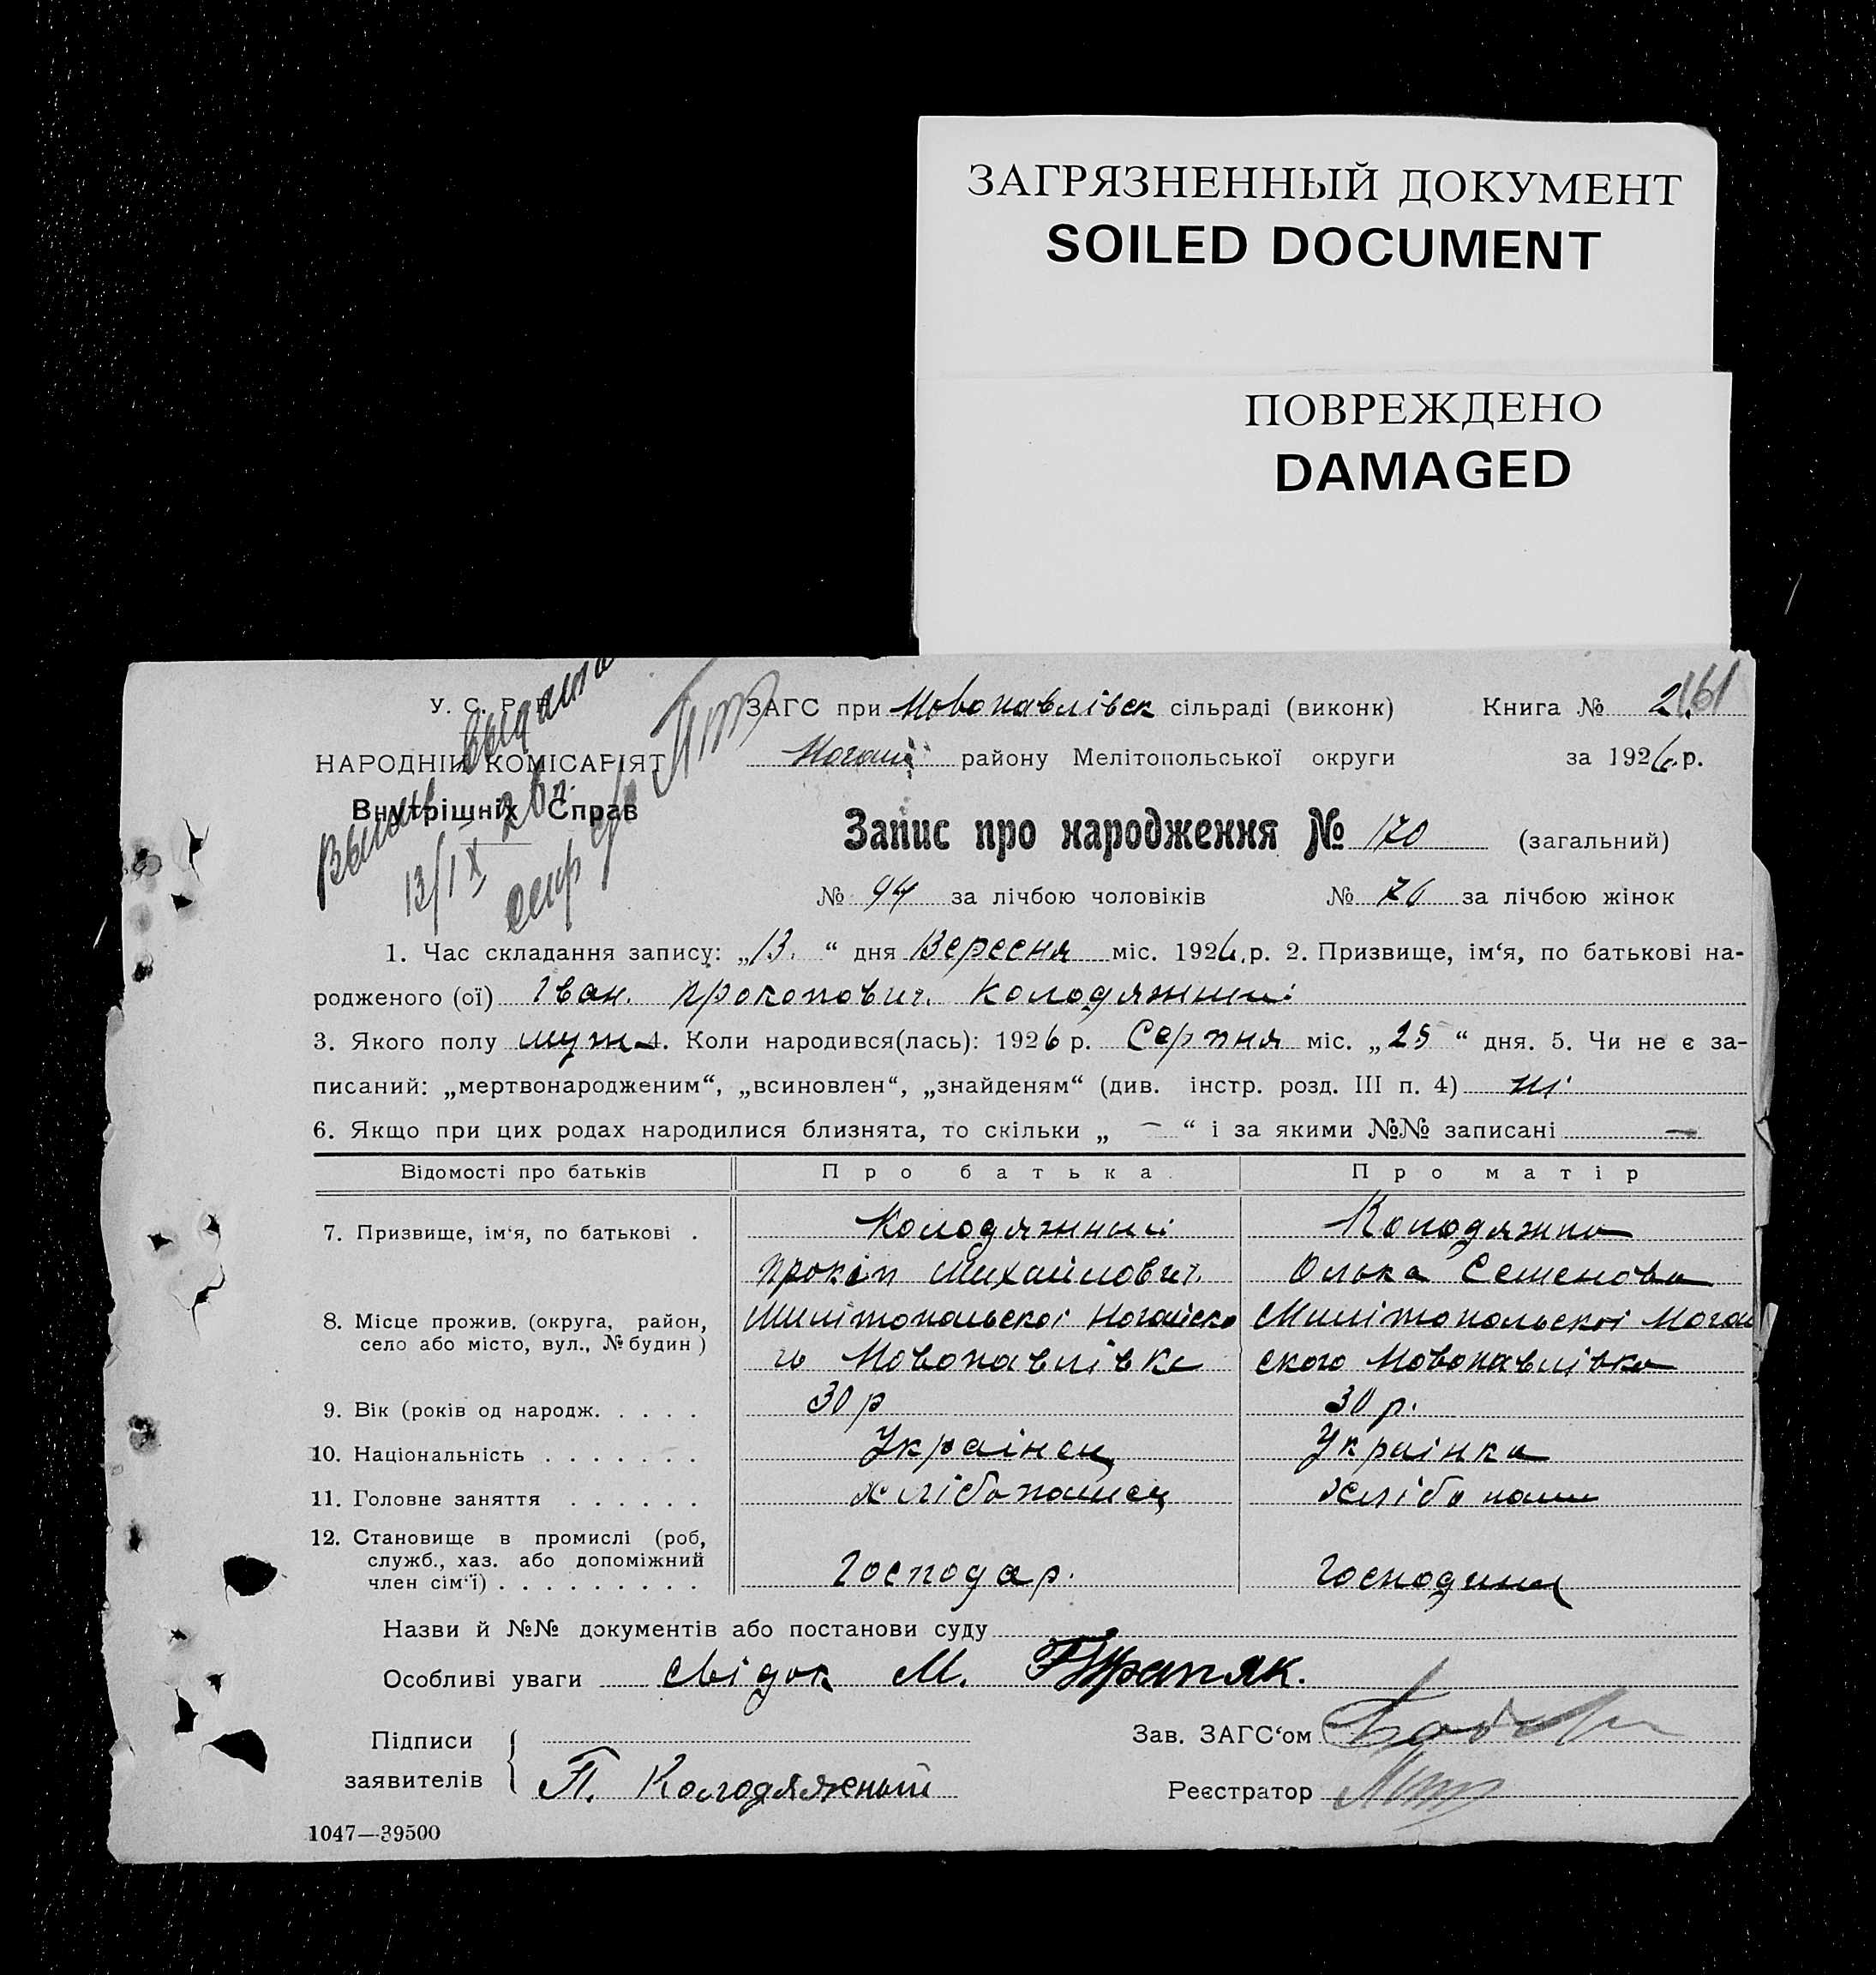 ЗАГРЯЗНЕННЫЙ ДОКУМЕНТ
SOILED DOCUMENT
ПОВРЕЖДЕНО
DAMAGED
У. С. Р. Р.
НАРОДНІЙ КОМІСАРІЯТ
Внутрішніх Справ
13/IX 26 р.
ЗАГС при Новопавлівск сільраді (виконк) Книга № 2. 161
Ногай району Мелітопольської округи за 1926 р.
Запис про народження № 170 (загальний)
№ 94 за лічбою чоловіків № 76 за лічбою жінок
1. Час складання запису: „13. “ дня Вересня міс. 1926.р. 2. Призвище, ім‘я, по батькові на-
родженого (ої) Іван. Прокопович. Колодяжний
3. Якого полу муж 4. Коли народився(лась): 1926 р. Серпня міс. „25 “ дня. 5. Чи не є за-
писаний: „мертвонародженим“, „всиновлен“, „знайденям“ (див. інстр. розд. III п. 4) ні
6. Якщо при цих родах народилися близнята, то скільки „ — “ і за якими №№ записані —
Відомості про батьків Про батька. Про матір
7. Призвище, ім‘я, по батькові . Колодяжний Колодяжна
Прокіп Михайлович. Олька Семенова
8. Місце прожив. (округа, район, Милітопольскоі Ногайско Милітопольскоі Ногай
село або місто, вул., № будин ) го Новопавлівка ского Новопавлівка
9. Вік (років од народж. . . . . 30 р 30 р.
10. Національність . . . . . . . Украінец Украінка
11. Головне заняття . . . . . . хлібопашец хлібопаш
12. Становище в промислі (роб,
служб., хаз. або допоміжний
член сім‘ї) . . . . . . . . . Господар. Господиня
Назви й №№ документів або постанови суду
Особливі уваги Свідок М.
Підписи
заявителів П. Колодяжный
Зав. ЗАГС‘ом
Реєстратор
1047—39500